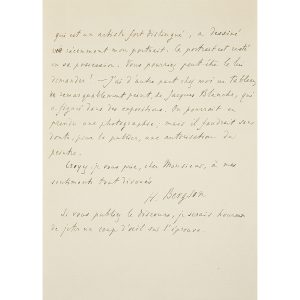 qui est un artiste fort distingué, a dessiné
récemment mon portrait. Ce portrait est resté
en sa possession. Vous pourriez peut-être le lui
demander ! — J'ai d'autre part chez moi un tableau
remarquablement peint, de Jacques Blanche, qui
a figuré dans des expositions. On pourrait en
prendre une photographie, mais il faudrait sans
doute, pour la publier, une autorisation du
peintre.
Croyez, je vous prie, cher Monsieur, à mes
sentiments tout dévoués
H. Bergson
Si vous publiez le discours, je serais heureux
de jeter un coup d'œil sur l'épreuve.